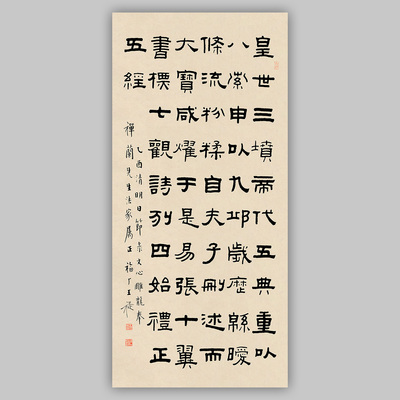 皇世三墳帝代五典重以
八索申以九邱歲歷緜曖
條流紛糅自夫子刪述而
大寶咸燿于是易張十翼
書標七觀詩列四始禮正
五經
乙酉清明日節彔文心雕龍奉
禪蘭先生法家屬正 福厂王禔